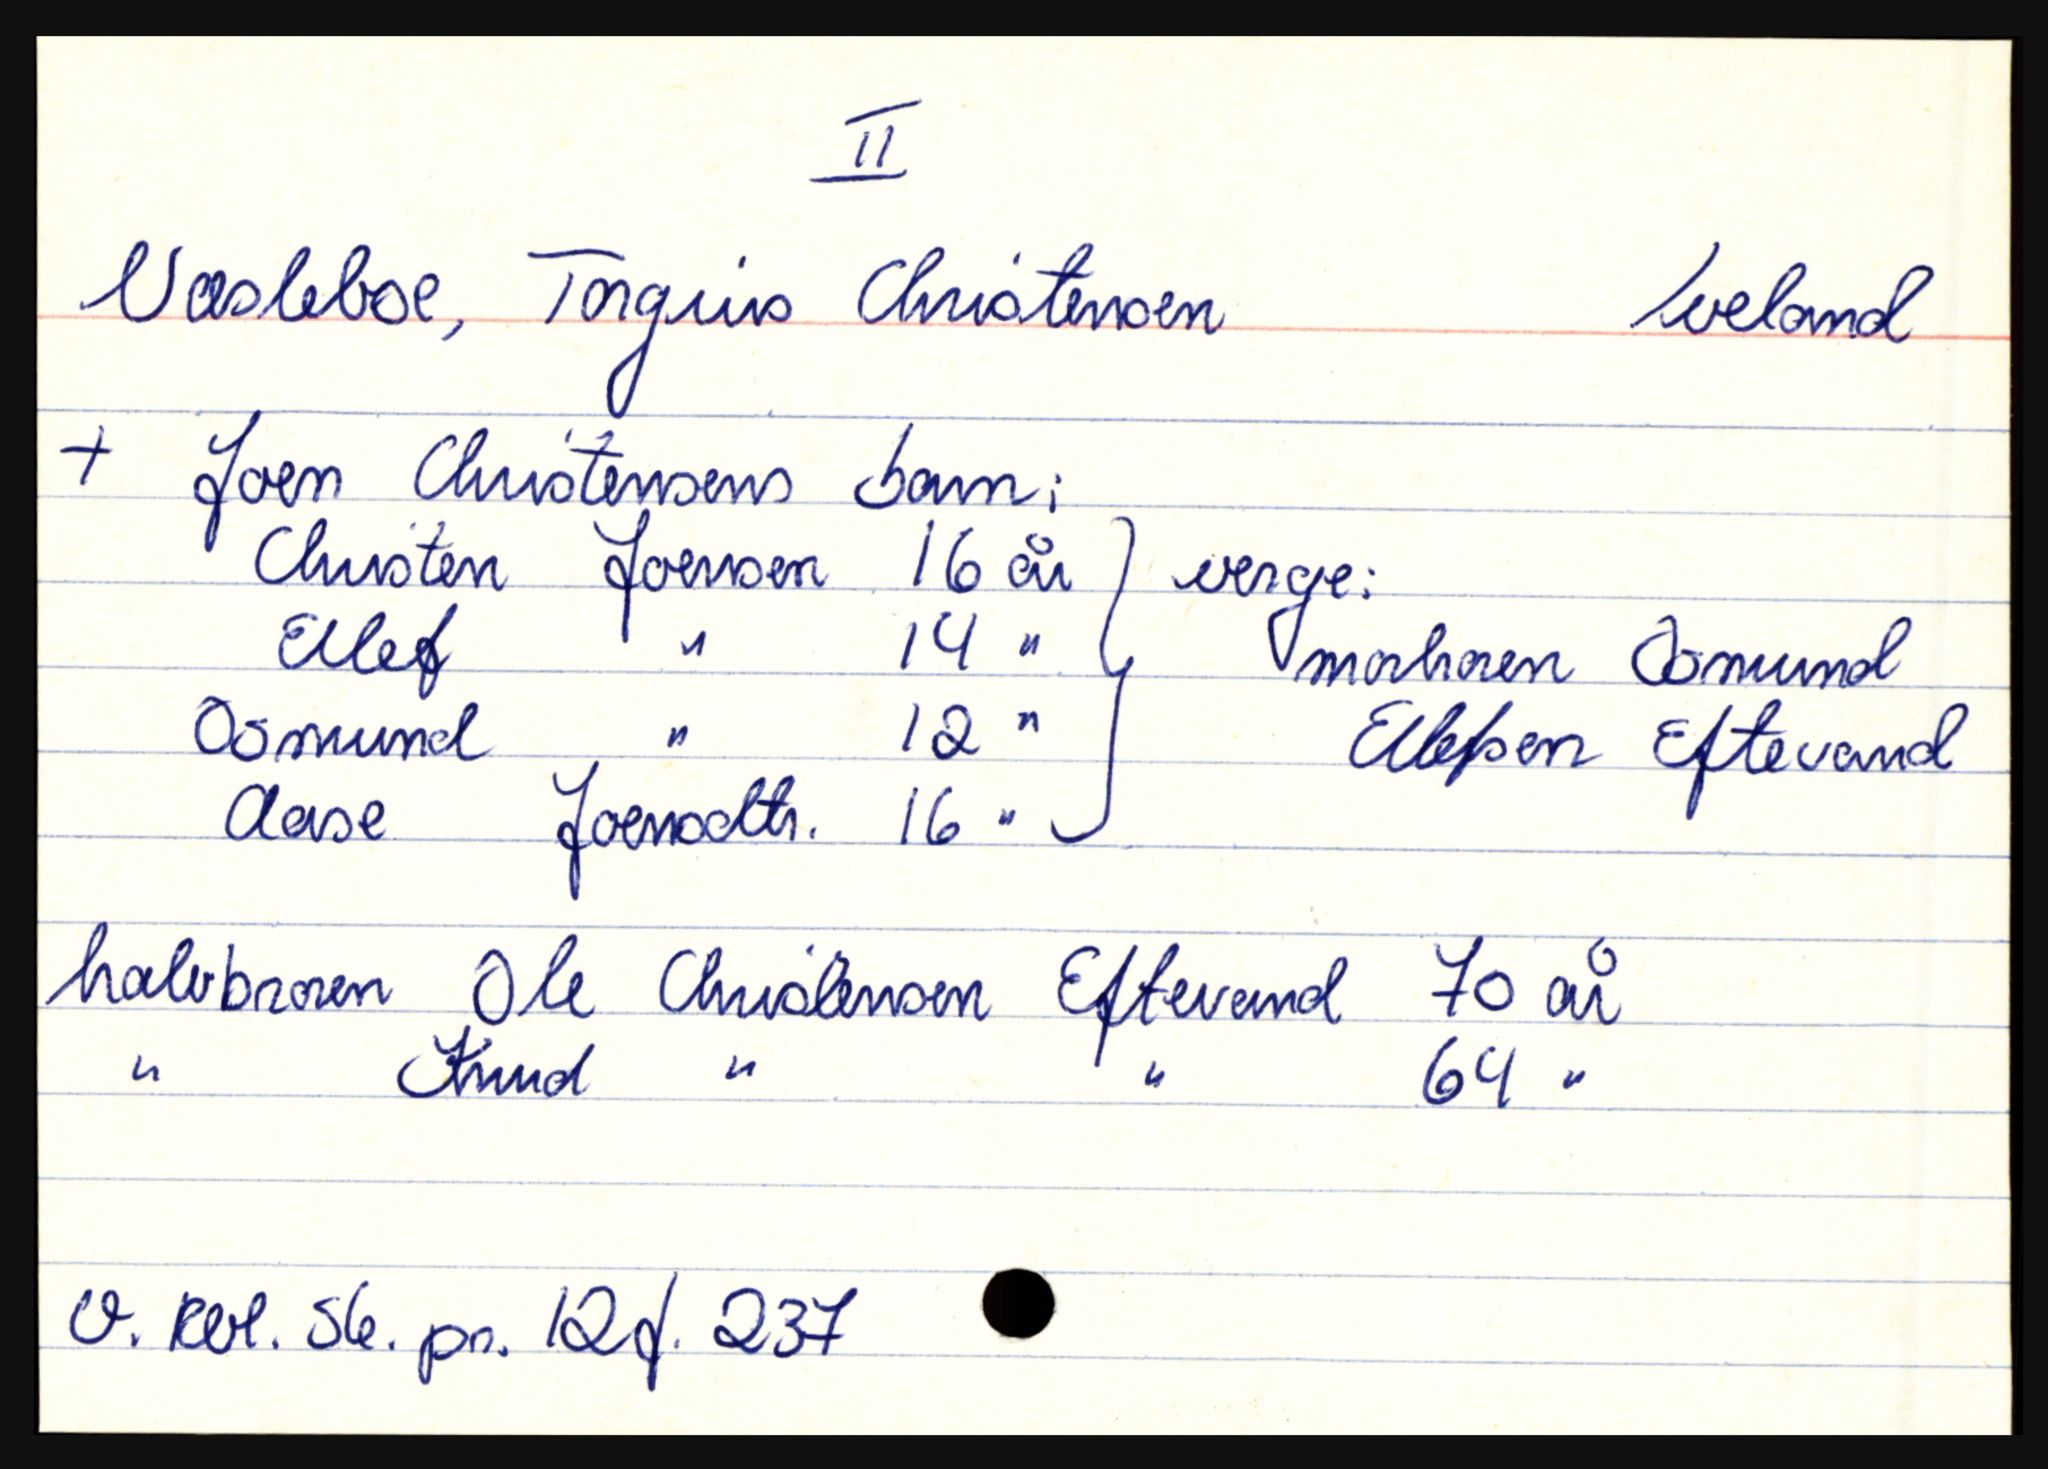 II
Væsleboe, Torgius Christensen Iveland
+ Joen Christensens barn:
Christen Joensen 16 år } verge:
Ellef " 14 " morbroren Osmund
Osmund " 12 " Ellefsen Eftevand
Aase Joensdtr. 16 "
halvbroren Ole Christensen Eftevand 70 år
" Knud " " 64 "
V. Rbl. sk. pr. 12 f. 237